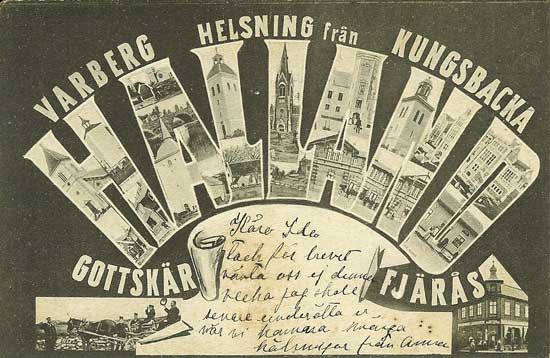 HELSNING från
VARBERG
KUNGSBACKA
HALLAND
GOTTSKÄR
FJÄRÅS
Kära Ida
Tack för brevet
vänta oss ej denna
vecka jag skall
senare underrätta er
när vi komma många
hälsningar från Anna